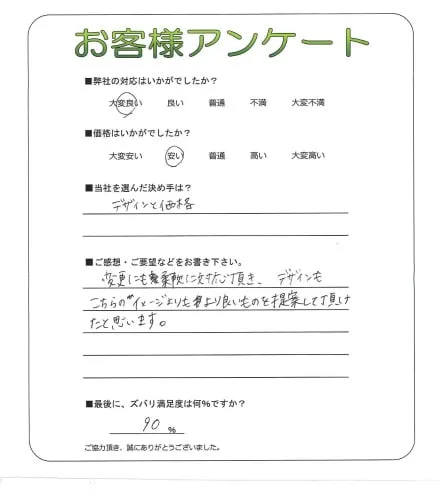 お客様アンケート
■弊社の対応はいかがでしたか？
大変良い 良い 普通 不満 大変不満
■価格はいかがでしたか？
大変安い 安い 普通 高い 大変高い
■当社を選んだ決め手は？
デザインと価格
■ご感想・ご要望などをお書き下さい。
変更にも柔軟に対応頂き、デザインも
こちらのイメージよりもより良いものを提案して頂け
たと思います。
■最後に、ズバリ満足度は何%ですか？
90 %
ご協力頂き、誠にありがとうございました。